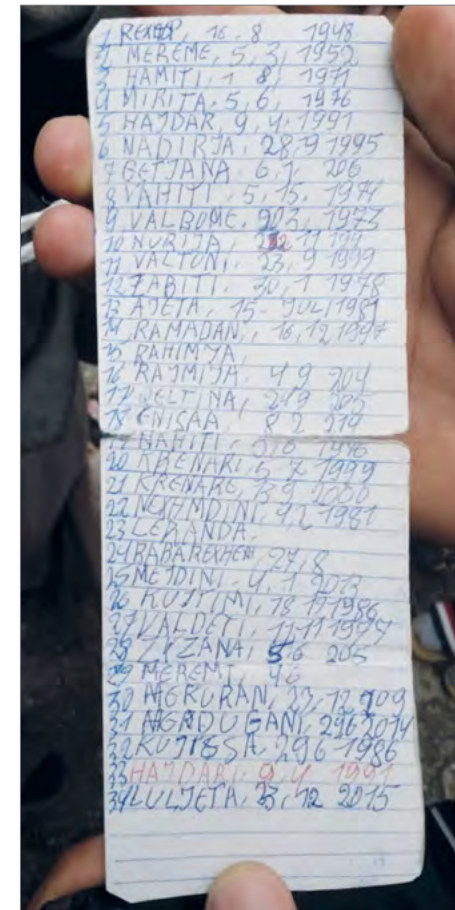 1 REXHEP, 16, 8 1948
2 MEREME, 5, 3, 1952
3 HAMITI, 1 8, 1971
4 MIRITA, 5, 6, 1976
5 HAJDAR, 9, 4, 1991
6 NADIRJA, 28, 9 1995
7 GETJANA, 6, 1, 206
8 VAHITI, 5, 15, 1974
9 VALBOME, 203, 1973
10 NURIJA, 11 199
11 VALTONI, 23, 9 1999
12 ZABITI, 30, 1 1978
13 AJETA, 15- JULI 1981
14 RAMADAN, 16, 12 1997
15 RAHIMJA,
16 RAJMIJA, 4 9 204
17 JELTINA, 249 205
18 ENISAA, 8 2 219
19 NAHITI, 1976
20 KRENARI, 5 7 1999
21 KRENARE, 2000
22 1981
23 LERANDA,
24 BABAREXHEM, 27, 8
25 MEJDINI, 4, 1 2013
26 KUJTIMI, 18 11 1986
27 VALDETI, 11 11 1977
28 ZIZANA, 5 6 205
29 MEREMI, 46
30 23, 12 909
31 296 2014
32 296 1986
33 HAJDARI, 9 4 1991
34 LULJETA, 23, 12 2015